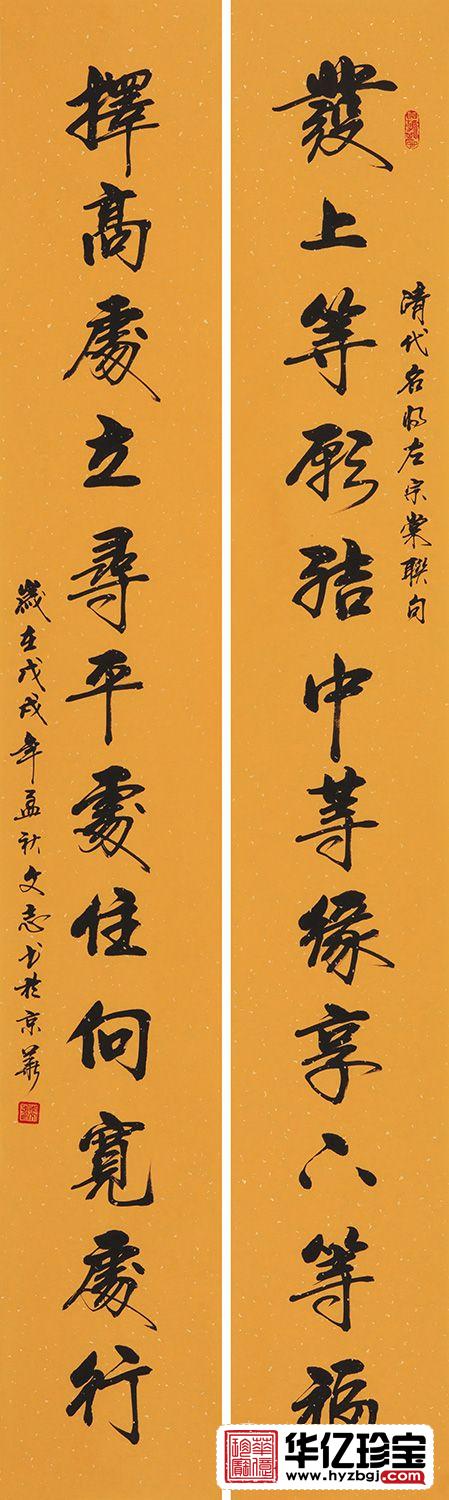 發上等願結中等緣享下等福
清代名將左宗棠聯句
擇高處立尋平處住向寬處行
歲在戊戌年孟秋文志書於京華
華億珍寶
华亿珍宝
www.hyzbgj.com